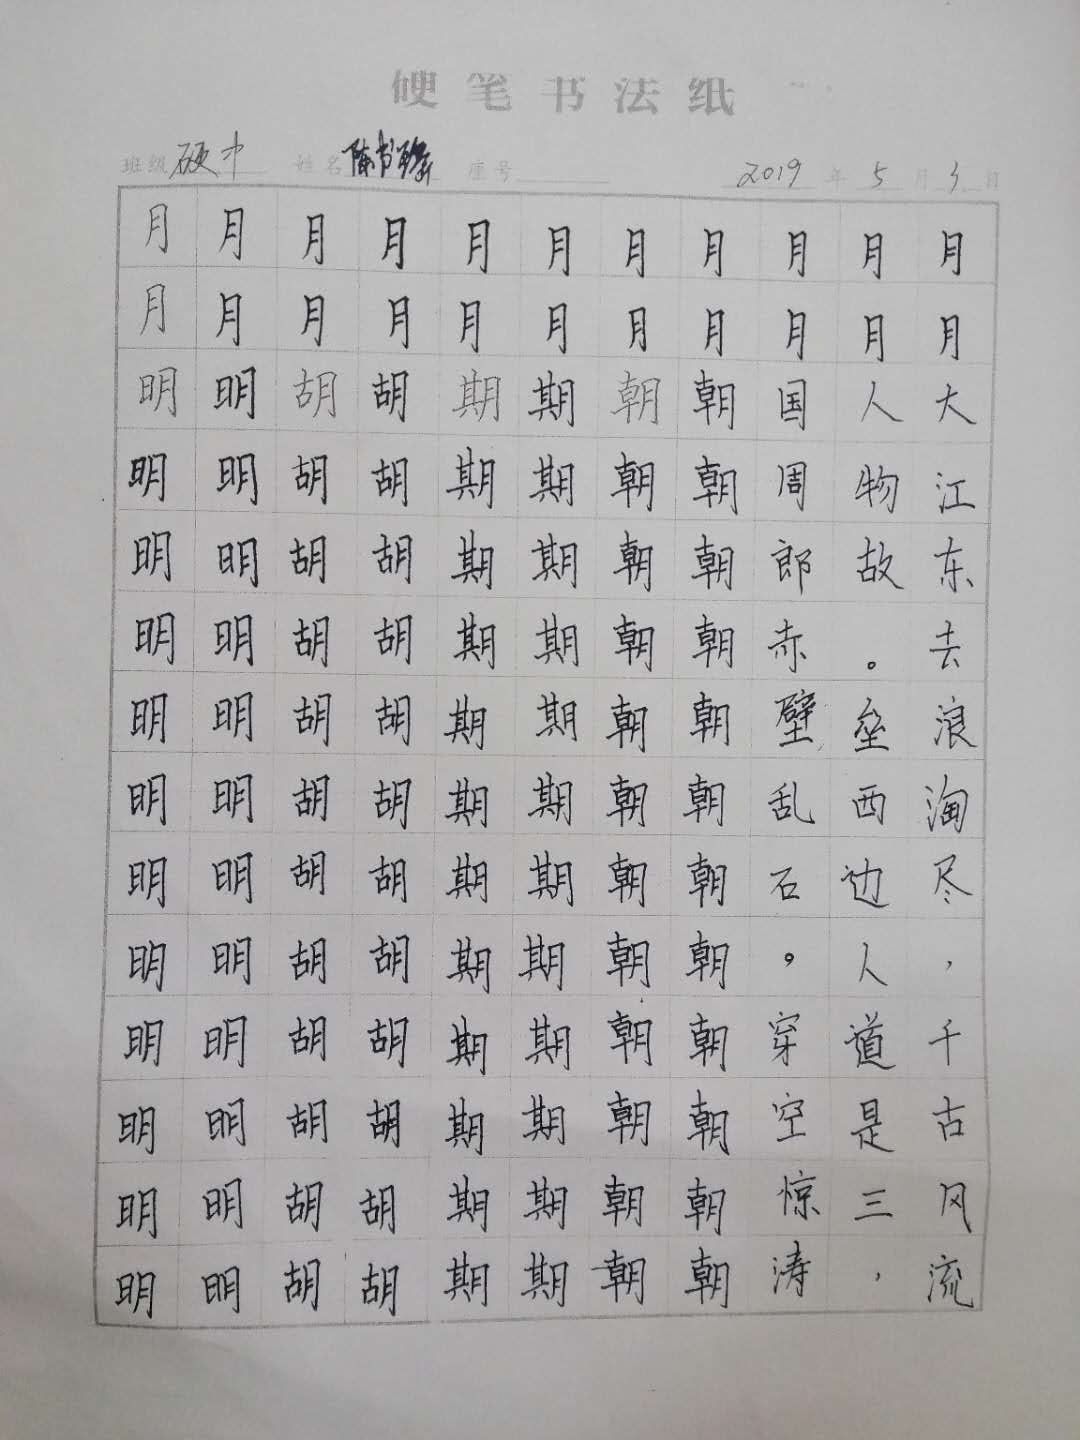 硬笔书法纸
班级 硬中 姓名 陈书 座号 2019年5月3日
月月月月月月月月月月月
月月月月月月月月月月月
大江东去浪淘尽，千古风流
人物故。垒西边人道是三，
国周郎赤壁乱石。穿空惊涛
朝朝朝朝朝朝朝朝朝朝朝朝
朝朝朝朝朝朝朝朝朝朝朝朝
期期期期期期期期期期期期
期期期期期期期期期期期期
胡胡胡胡胡胡胡胡胡胡胡胡
胡胡胡胡胡胡胡胡胡胡胡胡
明明明明明明明明明明明明
明明明明明明明明明明明明